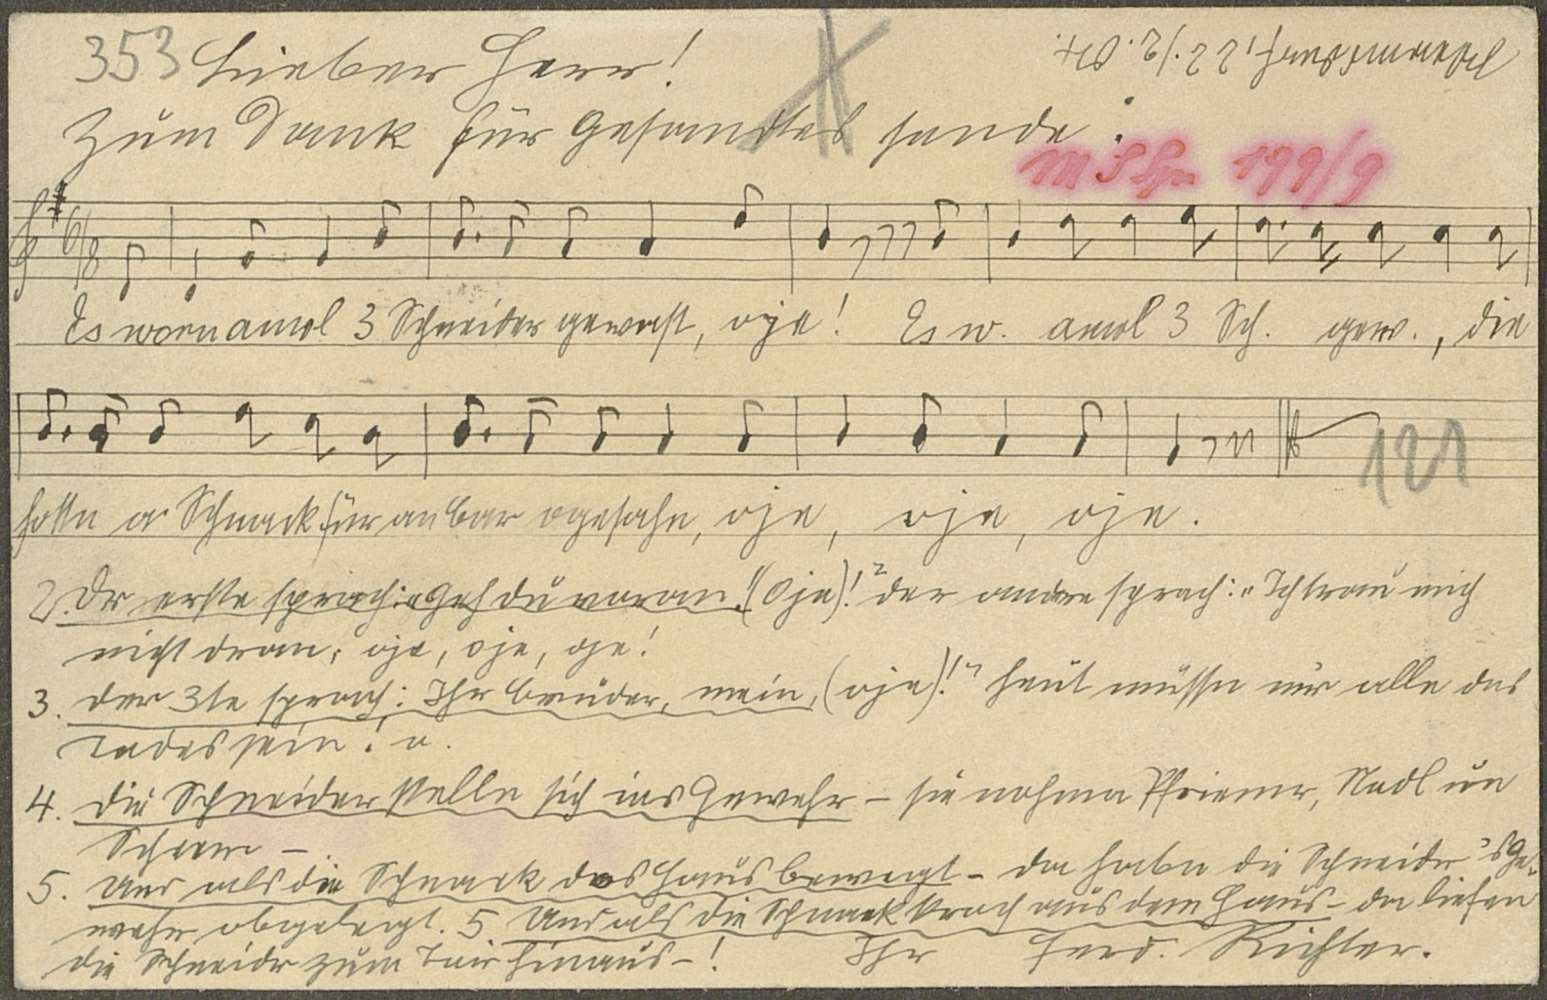 353 Lieber Herr!
Zum Dank für Gesandtes sende:
22./2. 07.
199/9
6/8
Es worn amol 3 Schneider gewest, oje! Es w. amol 3 Sch. gew., die
hottn a Schnack für an Bär ogesahn, oje, oje, oje.
121
2. Dr erste sprach: "Geh du voran!" (Oje)!² der andere sprach: "Ich trau mich
nicht dran; oje, oje, oje!
3. Der 3te sprach: Ihr Brüder, mein, (oje)!" heut müssn mir alle des
Todes sein! a.
4. Die Schneider stelln sich ins Gewehr – sie nohma Pfriemr, Nadl un
Scheern –
5. Und als die Schnack das Haus bewegt – da habn die Schneidr 's Ge-
wehr abgelegt. 5 Und als die Schnack kroch aus dem Haus – da liefen
die Schneidr zum Tor hinaus –!
Ihr Ferd. Richter.